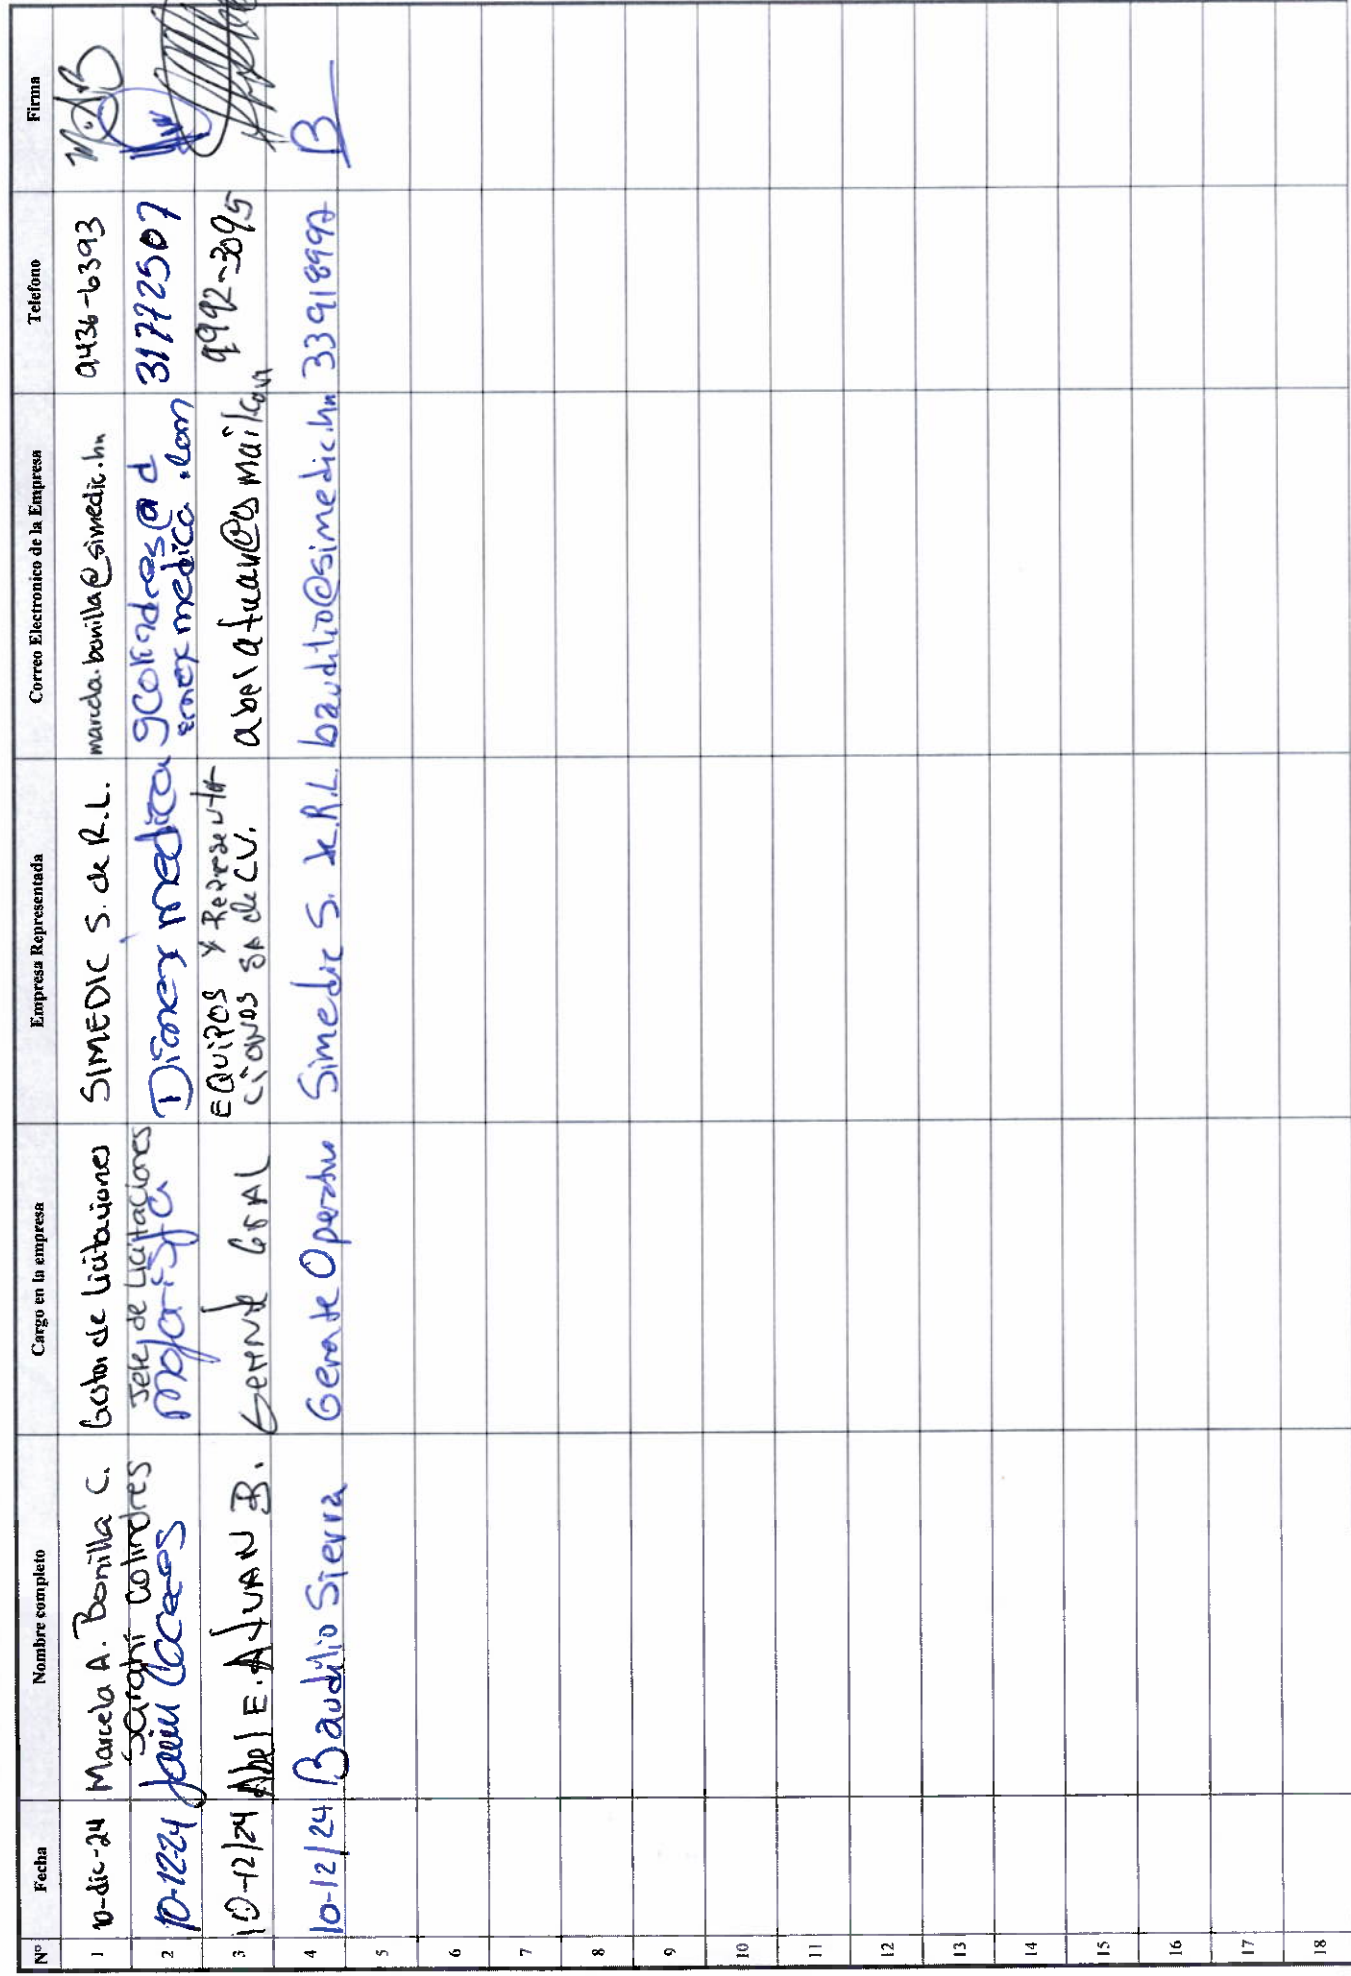 Nº Fecha Nombre completo Cargo en la empresa Empresa Representada Correo Electronico de la Empresa Telefono Firma
1 10-dic-24 Marcela A. Bonilla C. Gestor de Licitaciones SIMEDIC S. de R.L. marcela.bonilla@simedic.hn 9436-6393
Sarahi Colindres Jefe de Licitaciones
2 10-12-24 Motorista Dimex medica gcolindres@d
emexmedica.com 31772507
3 10-12/24 Abel E. AJUAN B. Gerente GRAL EQUIPOS Y Representa
ciones SA de CV. 9992-3095
4 10-12/24 Baudilio Sierra Gerente Operativo Simedic S. de R.L. baudilio@simedic.hn 33918997 B
5
6
7
8
9
10
11
12
13
14
15
16
17
18